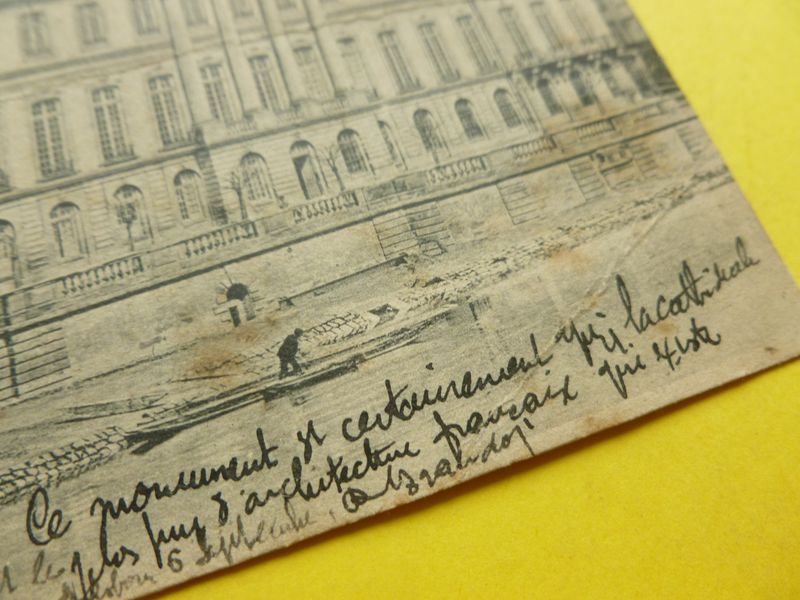 Ce monument est certainement après la cathédrale
et le plus pur d'architecture français qui existe
6 Septembre